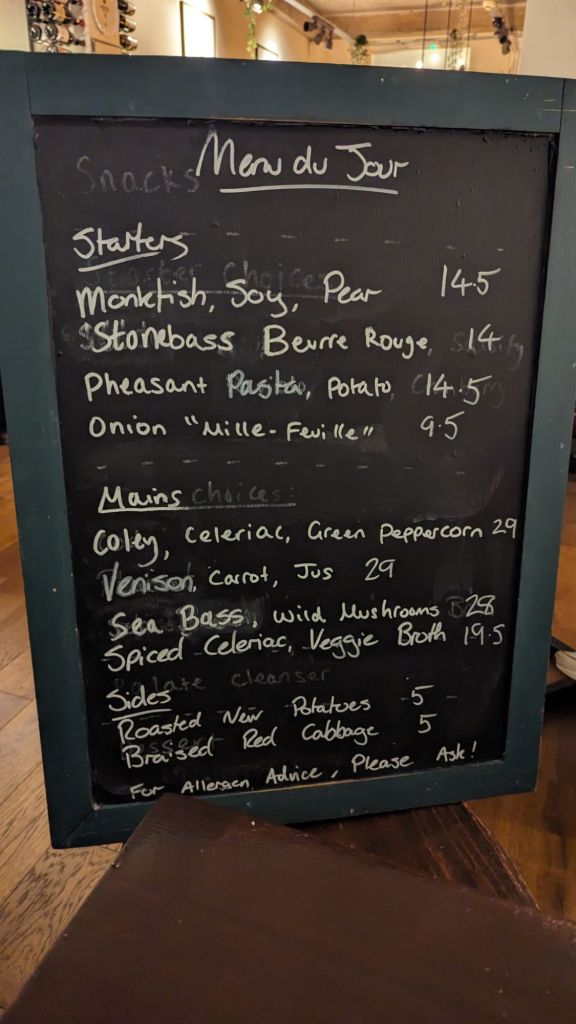 Menu du Jour
Snacks
Starters
Monkfish, Soy, Pear 14.5
Stonebass Beurre Rouge, 14
Pheasant Pasta, Potato, 14.5
Onion "Mille-Feuille" 9.5
Mains choices:
Coley, Celeriac, Green Peppercorn 29
Venison, Carrot, Jus 29
Sea Bass, Wild Mushrooms 28
Spiced Celeriac, Veggie Broth 19.5
Palate cleanser
Sides
Roasted New Potatoes 5
Braised Red Cabbage 5
For Allergen Advice, Please Ask!